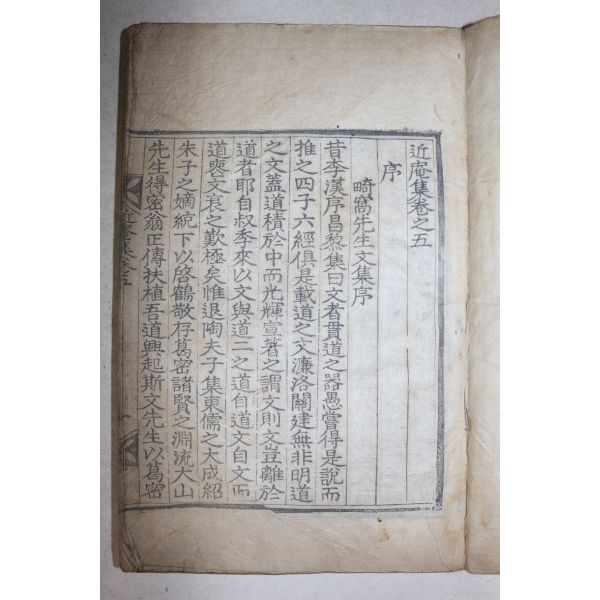 近庵集卷之五
序
畸窩先生文集序
昔李漢序昌黎集曰文者貫道之器愚嘗得是說而
推之四子六經俱是載道之文濂洛關建無非明道
之文蓋道積於中而光輝宣著之謂文則文豈離於
道者耶自叔季來以文與道二之道自道文自文而
道喪文衰之歎極矣惟退陶夫子集東儒之大成紹
朱子之嫡統下以啓鶴敬存葛密諸賢之淵流大山
先生得密翁正傳扶植吾道興起斯文先生以葛密
近庵集卷五